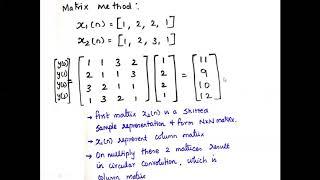 Matrix method:
x₁(n) = [1, 2, 2, 1]
x₂(n) = [1, 2, 3, 1]
[y(0) y(1) y(2) y(3)] = [1 1 3 2; 2 1 1 3; 3 2 1 1; 1 3 2 1] [1 2 2 1] = [11 9 10 12]
→ First matrix x₂(n) is a shifted
sample representation & form NxN matrix.
→ x₁(n) represent column matrix
→ On multiply these 2 matrices result
in circular convolution, which is
column matrix